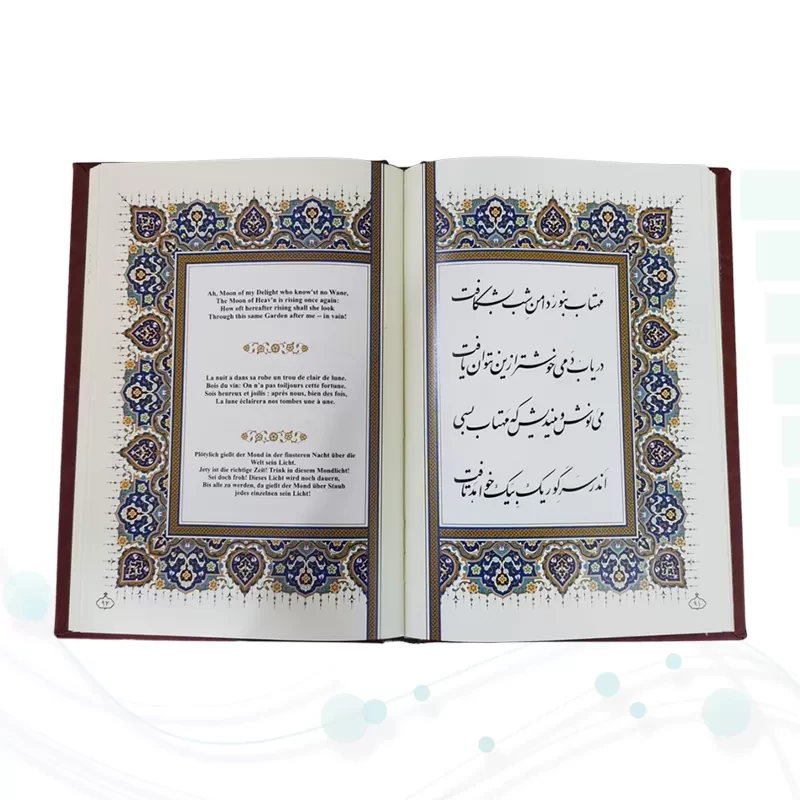 مهتاب بنور دامن شب بشکافت
دریاب دمی خوشتر ازین نتوان یافت
می نوش و میندیش که مهتاب بسی
اندر سر گور یک بیک خواهد تافت
٩١
Ah, Moon of my Delight who know'st no Wane,
The Moon of Heav'n is rising once again:
How oft hereafter rising shall she look
Through this same Garden after me -- in vain!
La nuit a dans sa robe un trou de clair de lune.
Bois du vin: On n'a pas toiljours cette fortune.
Sois heureux et joilis : après nous, bien des fois,
La lune éclairera nos tombes une à une.
Plötylich gießt der Mond in der finsteren Nacht über die
Welt sein Licht.
Jety ist die richtige Zeit! Trink in diesem Mondlicht!
Sei doch froh! Dieses Licht wird noch dauern,
Bis alle zu werden, da gießt der Mond über Staub
jedes einzelnen sein Licht!